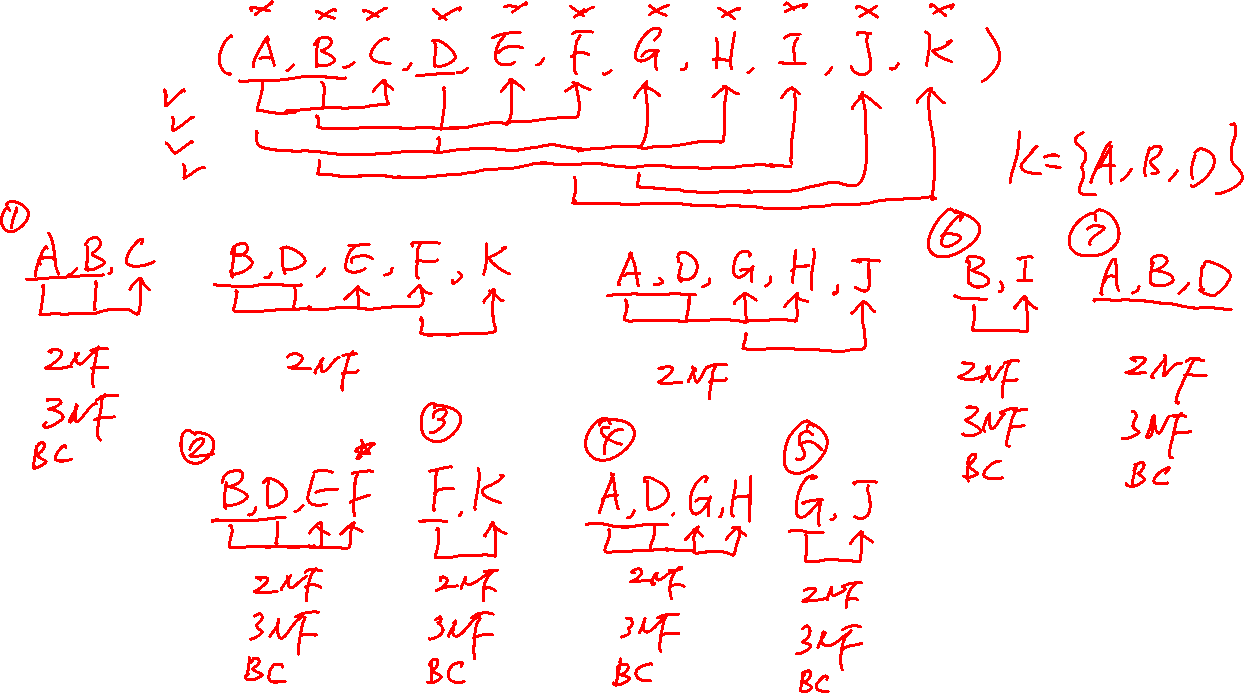 (A, B, C, D, E, F, G, H, I, J, K)
K={A, B, D}
①
A, B, C
2NF
3NF
BC
B, D, E, F, K
2NF
A, D, G, H, J
2NF
⑥
B, I
2NF
3NF
BC
⑦
A, B, D
2NF
3NF
BC
②
B, D, E F*
2NF
3NF
BC
③
F, K
2NF
3NF
BC
④
A, D, G, H
2NF
3NF
BC
⑤
G, J
2NF
3NF
BC